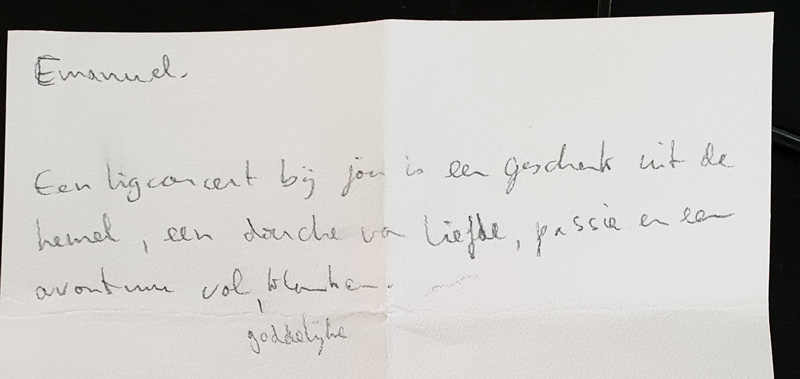 Emanuel.
Een ligconcert bij jou is een geschenk uit de
hemel, een douche van liefde, passie en een
avontuur vol, klanken.
goddelijke